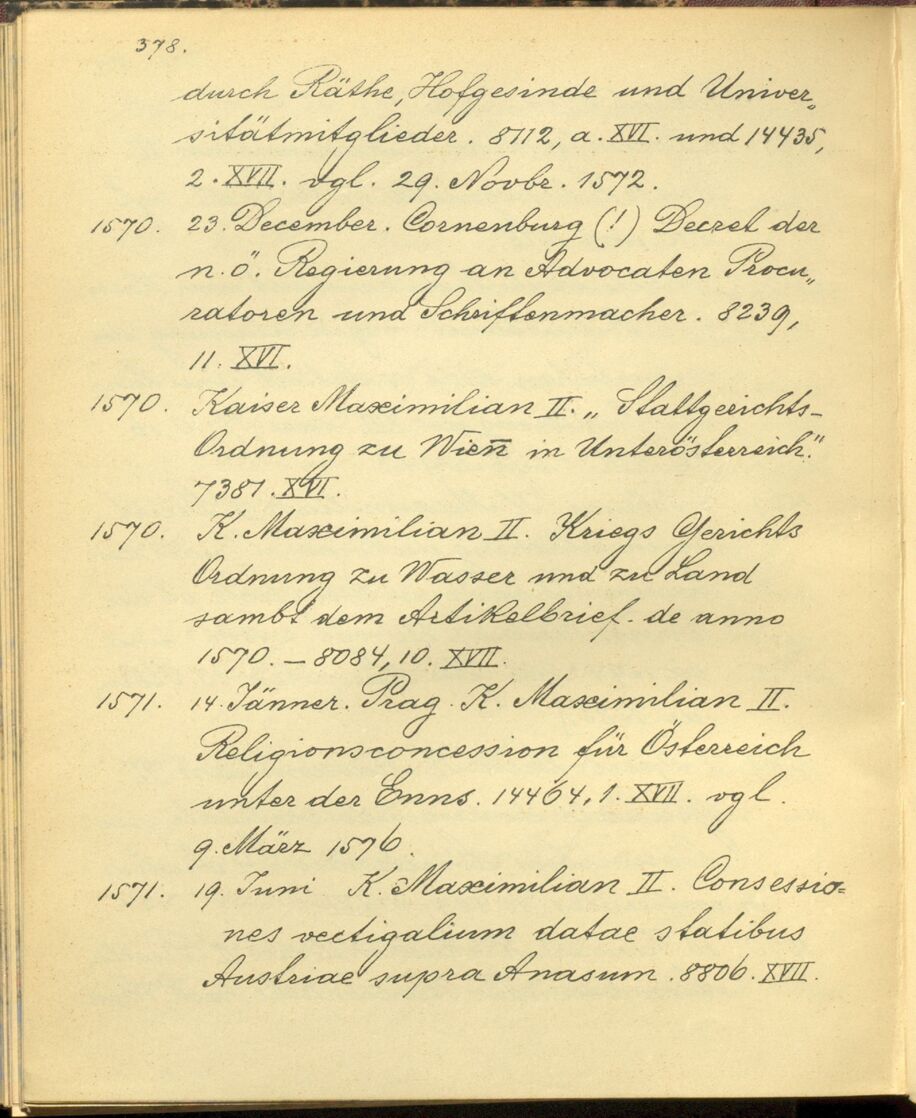 378.
durch Räthe, Hofgesinde und Univer„
sitätmitglieder. 8112, a. XVI. und 14435,
2. XVII. vgl. 29. Novbr. 1572.
1570. 23. December. Cornenburg (!) Decret der
n. ö. Regierung an Advocaten Procu„
ratoren und Schriftenmacher. 8239,
11. XVI.
1570. Kaiser Maximilian II. „Stattgerichts-
Ordnung zu Wien̅ in Unterösterreich."
7381. XVI.
1570. K. Maximilian II. Kriegs Gerichts
Ordnung zu Wasser und zu Land
sambt dem Artikelbrief. de anno
1570. – 8084, 10. XVII.
1571. 14. Jänner. Prag. K. Maximilian II.
Religionsconcession für Österreich
unter der Enns. 14464, 1. XVII. vgl.
9. März 1576.
1571. 19. Juni K. Maximilian II. Consessio=
nes vectigalium datae statibus
Austriae supra Anasum. 8806. XVII.